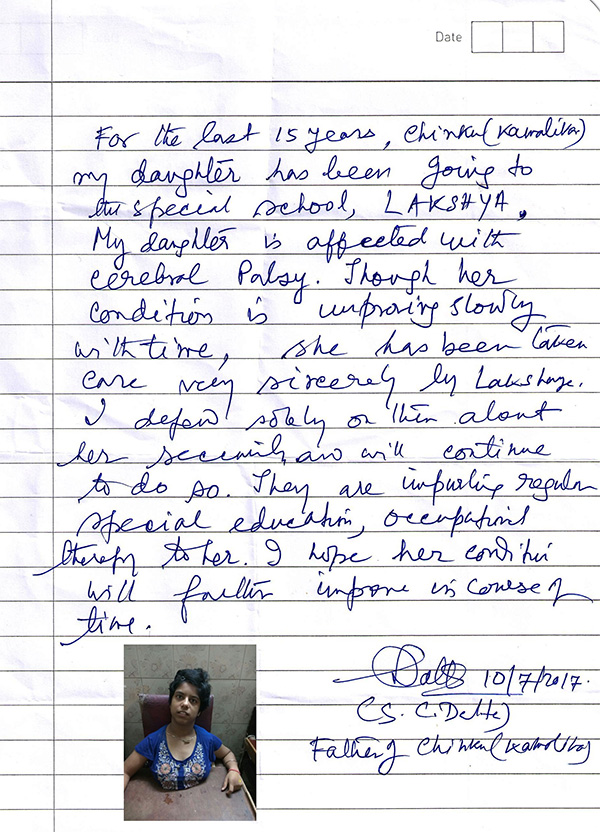 Date
For the last 15 years, Chinku (Kamalika)
my daughter has been going to
the special school, LAKSHYA.
My daughter is affected with
cerebral Palsy. Though her
condition is improving slowly
with time, she has been taken
care very sincerely by Lakshya.
I depend solely on them about
her security and will continue
to do so. They are imparting regular
special education, occupational
therapy to her. I hope her condition
will further improve in course of
time.
10/7/2017.
(S. C. Dutta)
Father of Chinku (Kamalika)